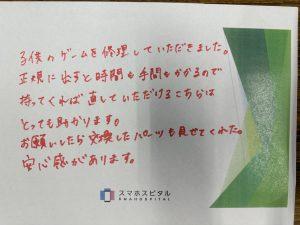 子供のゲームを修理していただきました。
正規に出すと時間も手間もかかるので
持ってくれば直していただけるこちらは
とっても助かります。
お願いしたら交換したパーツも見せてくれた。
安心感があります。
スマホスピタル
SMAHOSPITAL